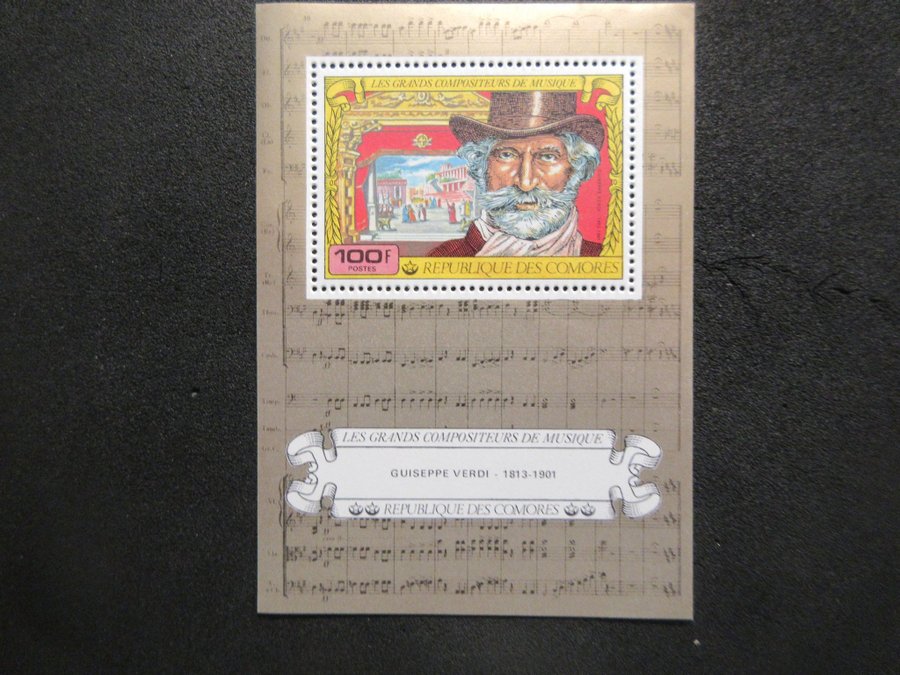 LES GRANDS COMPOSITEURS DE MUSIQUE
100F
POSTES
REPUBLIQUE DES COMORES
LES GRANDS COMPOSITEURS DE MUSIQUE
GUISEPPE VERDI - 1813-1901
REPUBLIQUE DES COMORES